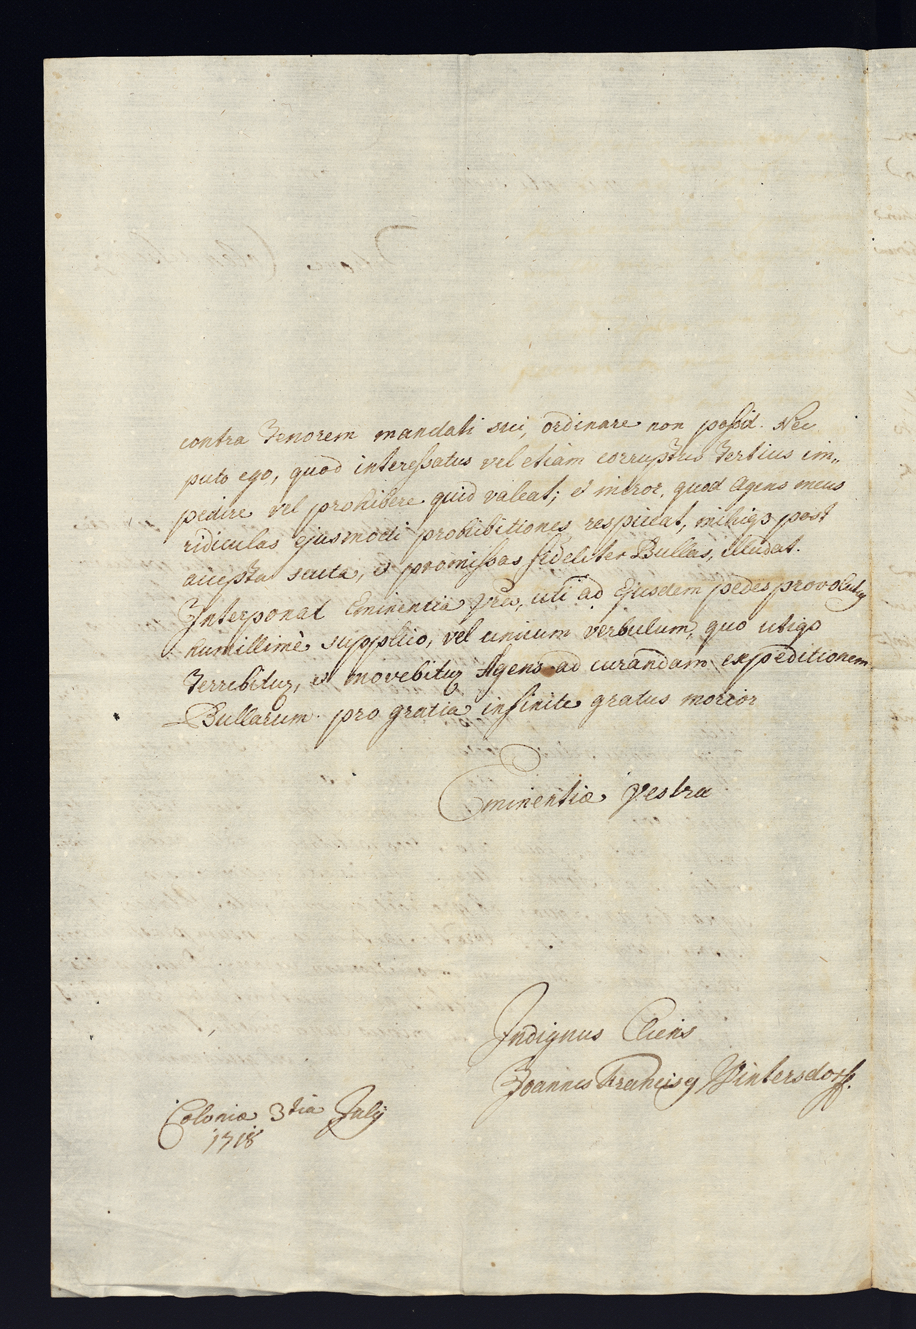 contra Tenorem mandati sui, ordinare non possit. Nec
puto ego, quod interessatus vel etiam corruptus Tertius im„
pedire vel prohibere quid valeat; et miror, quod Agens meus
ridiculas ejusmodi prohibitiones respiciat, mihiq3 post
accepta scuta, et promissas fideliter Bullas, illudat.
Interponat Eminentia Vra, uti ad Ejusdem pedes provolutus
humillimè supplico, vel unicum verbulum, quo utiq3
Terrebitur, et movebitur Agens ad curandam expeditionem
Bullarum. pro gratia infinite gratus morior
Eminentiæ Vestra
Indignus Cliens
Joannes Franciscg Wintersdorff.
Coloniæ 3tia Julij
1718